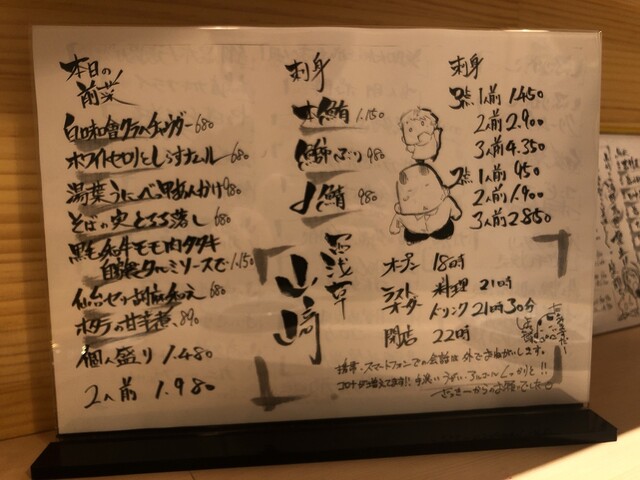 本日の
前菜
白味噌クラムチャウダー 680
ホワイトセロリとしらすナムル 680
湯葉うにべっ甲あんかけ 980
そばの実とろろ落し 680
黒毛和牛モモ肉タタキ
自家製タルミソースで 1.150
仙台セリ胡麻和え 680
ホタテの甘辛煮 890
個人盛り 1.480
2人前 1.980
刺身
本鮪 1.150
鰤 ぶり 980
鮪 980
西浅草
山崎
刺身
3点 1人前 1.450
2人前 2.900
3人前 4.350
2点 1人前 950
2人前 1.900
3人前 2.850
オープン 18時
ラスト
オーダー 料理 21時
ドリンク 21時30分
閉店 22時
携帯・スマートフォンでの会話は外でお願いします。
コロナが増えてます! 手洗い うがい アルコール しっかりと!!
ざっきーからのお願いでした